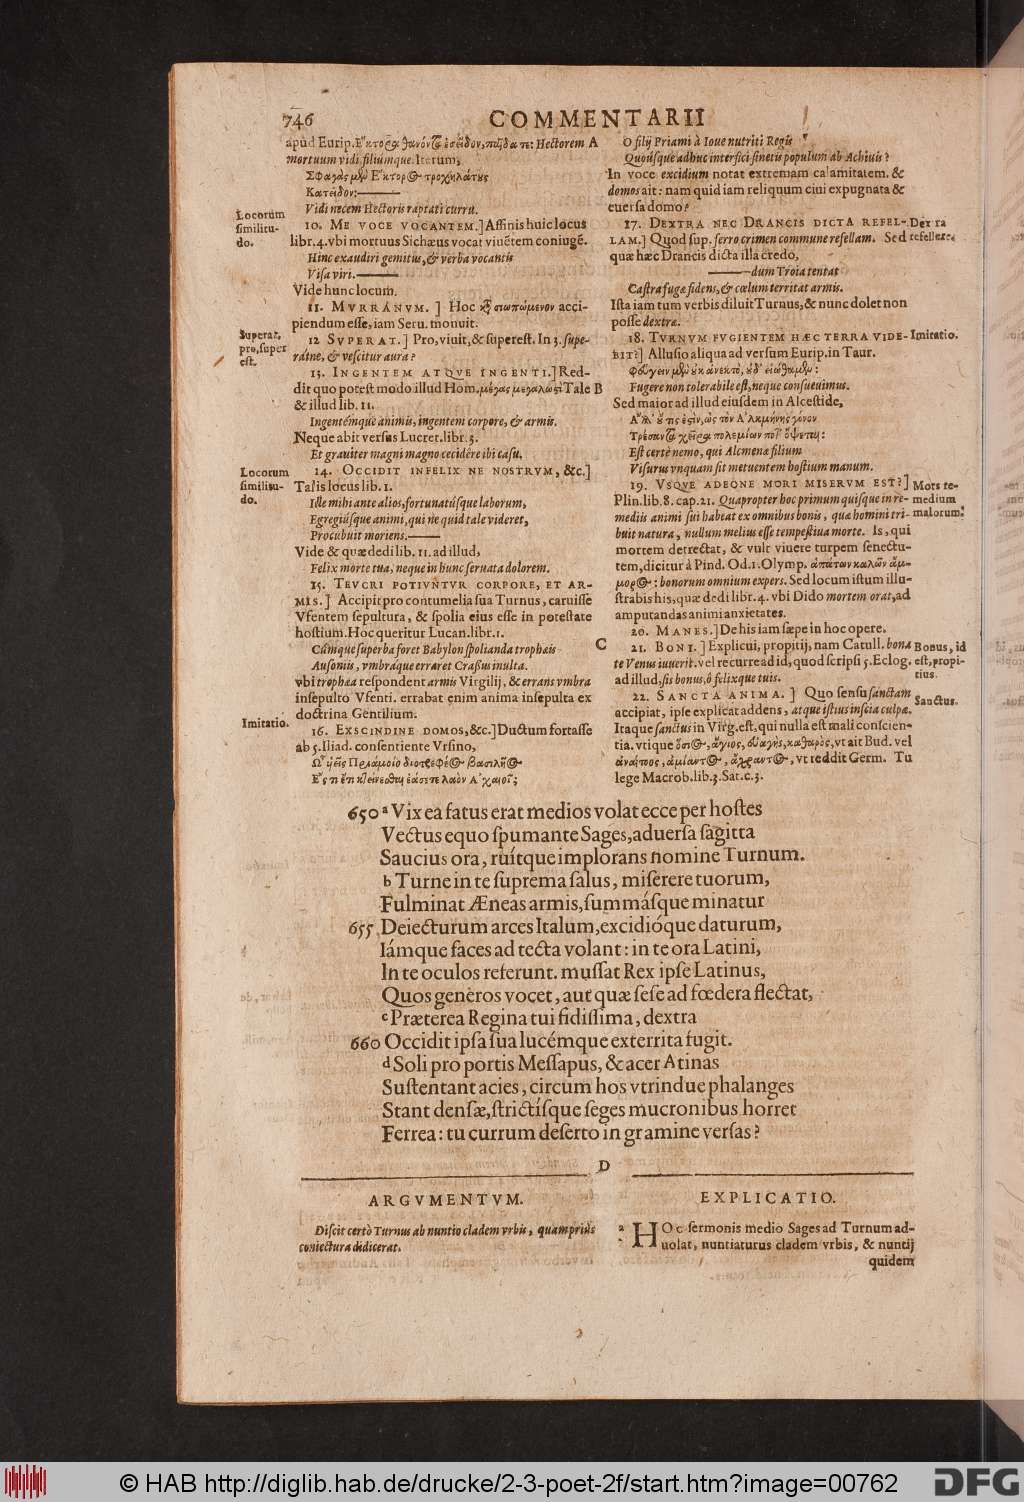 746
COMMENTARII
apud Eurip. Ἕκτορα θανόντ' ἐσεῖδον, παῖδά τε: Hectorem A
mortuum vidi, filiumque. Iterum,
Σφαγὰς μὲν Ἕκτορος τροχηλάτους
Κατεῖδον:———
Vidi necem Hectoris raptati curru.
Locorum
similitu-
do.
10. ME VOCE VOCANTEM.] Affinis huic locus
libr. 4. vbi mortuus Sichæus vocat viuētem coniugē.
Hinc exaudiri gemitus, & verba vocantis
Visa viri.———
Vide hunc locum.
11. MVRRANVM.] Hoc σιωπώμενον acci-
piendum esse, iam Seru. monuit.
Superat,
pro, super
est.
12 SVPERAT.] Pro, viuit, & superest. In 3. supe-
rátne, & vescitur aura?
13. INGENTEM ATQVE INGENTI.] Red-
dit quo potest modo illud Hom. μέγας μεγαλωστί Tale B
& illud lib. 11.
Ingentémque animis, ingentem corpore, & armis.
Neque abit versus Lucret. libr. 3.
Et grauiter magni magno cecidêre ibi casu.
Locorum
similitu-
do.
14. OCCIDIT INFELIX NE NOSTRVM, &c.]
Talis locus lib. 1.
Ille mihi ante alios, fortunatúsque laborum,
Egregiúsque animi, qui ne quid tale videret,
Procubuit moriens.———
Vide & quæ dedi lib. 11. ad illud,
Felix morte tua, neque in hunc seruata dolorem.
15. TEVCRI POTIVNTVR CORPORE, ET AR-
MIS.] Accipit pro contumelia sua Turnus, caruisse
Vfentem sepultura, & spolia eius esse in potestate
hostium. Hoc queritur Lucan. libr. 1.
Cùmque superba foret Babylon spolianda trophæis C
Ausoniis, vmbráque erraret Crassus inulta.
vbi trophæa respondent armis Virgilij, & errans vmbra
insepulto Vfenti. errabat enim anima insepulta ex
doctrina Gentilium.
Imitatio.
16. EXSCINDINE DOMOS, &c.] Ductum fortasse
ab 5. Iliad. consentiente Vrsino,
Ὦ υἱεῖς Πριάμοιο διοτρεφέος βασιλῆος
Ἐς τί ἔτι κτείνεσθαι ἐάσετε λαὸν Ἀχαιοῖς;
O filij Priami à Ioue nutriti Regis
Quoúsque adhuc interfici sinetis populum ab Achiuis?
In voce excidium notat extremam calamitatem. &
domos ait: nam quid iam reliquum ciui expugnata &
euersa domo?
17. DEXTRA NEC DRANCIS DICTA REFEL-
LAM.] Quod sup. ferro crimen commune refellam. Sed
Dextra
refellere.
quæ hæc Drancis dicta illa credo,
———dum Troia tentat
Castra fugæ fidens, & cœlum territat armis.
Ista iam tum verbis diluit Turnus, & nunc dolet non
posse dextra.
18. TVRNVM FVGIENTEM HÆC TERRA VIDE-
Imitatio.
BIT?] Allusio aliqua ad versum Eurip. in Taur.
Φεύγειν μὲν οὐκ ἀνεκτὸν, οὐδ' εἰώθαμεν:
Fugere non tolerabile est, neque consueuimus.
Sed maior ad illud eiusdem in Alcestide,
Ἀλλ' οὔ τις ἐστὶν, ὡς τὸν Ἀλκμήνης γόνον
Τρέσαντα χεῖρα πολεμίων ποτ' ὄψεται:
Est certè nemo, qui Alcmenæ filium
Visurus vnquam sit metuentem hostium manum.
19. VSQVE ADEONE MORI MISERVM EST?]
Mors re-
medium
malorum.
Plin. lib. 8. cap. 21. Quapropter hoc primum quisque in re-
mediis animi sui habeat ex omnibus bonis, quæ homini tri-
buit natura, nullum melius esse tempestiua morte. Is, qui
mortem detrectat, & vult viuere turpem senectu-
tem, dicitur à Pind. Od. 1. Olymp. ἁπάντων καλῶν ἄμ-
μορος: bonorum omnium expers. Sed locum istum illu-
strabis his, quæ dedi libr. 4. vbi Dido mortem orat, ad
amputandas animi anxietates.
20. MANES.] De his iam sæpe in hoc opere.
21. BONI.] Explicui, propitij, nam Catull. bona
Bonus, id
est, propi-
tius.
te Venus iuuerit. vel recurre ad id, quod scripsi 5. Eclog.
ad illud, sis bonus, ô felixque tuis.
22. SANCTA ANIMA.] Quo sensu sanctam
Sanctus.
accipiat, ipse explicat addens, atque istius inscia culpæ.
Itaque sanctus in Virg. est, qui nulla est mali conscien-
tia. vtique ὅσιος, ἅγιος, εὐαγὴς, καθαρὸς, vt ait Bud. vel
ἀναίτιος, ἀμίαντος, ἄχραντος, vt reddit Germ. Tu
lege Macrob. lib. 3. Sat. c. 3.
650 a Vix ea fatus erat medios volat ecce per hostes
Vectus equo spumante Sages, aduersa sagitta
Saucius ora, ruítque implorans nomine Turnum.
b Turne in te suprema salus, miserere tuorum,
Fulminat Æneas armis, summásque minatur
655 Deiecturum arces Italum, excidióque daturum,
Iámque faces ad tecta volant: in te ora Latini,
In te oculos referunt. mussat Rex ipse Latinus,
Quos generos vocet, aut quæ sese ad fœdera flectat,
c Præterea Regina tui fidissima, dextra
660 Occidit ipsa sua lucémque exterrita fugit.
d Soli pro portis Messapus, & acer Atinas
Sustentant acies, circum hos vtrinque phalanges
Stant densæ, strictísque seges mucronibus horret
Ferrea: tu currum deserto in gramine versas?
D
ARGVMENTVM.
Discit certò Turnus ab nuntio cladem vrbis, quam priùs
coniectura didicerat.
EXPLICATIO.
a HOc sermonis medio Sages ad Turnum ad-
uolat, nuntiaturus cladem vrbis, & nuntij
quidem
© HAB http://diglib.hab.de/drucke/2-3-poet-2f/start.htm?image=00762
DFG